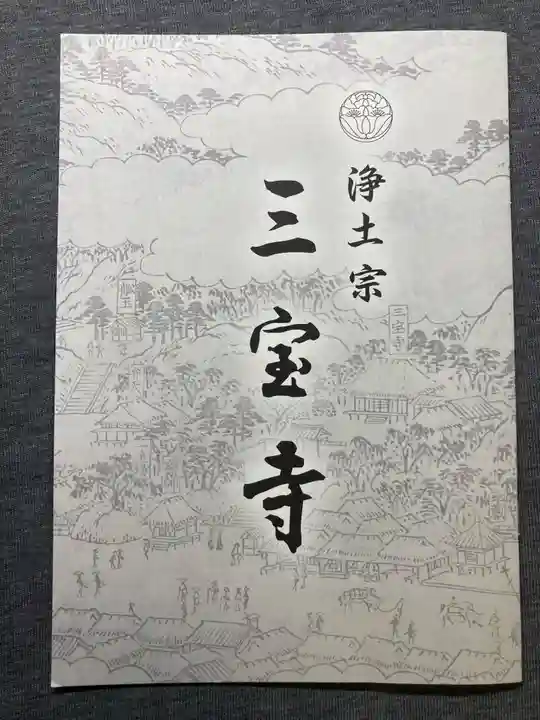 浄土宗
三宝寺
三宝寺